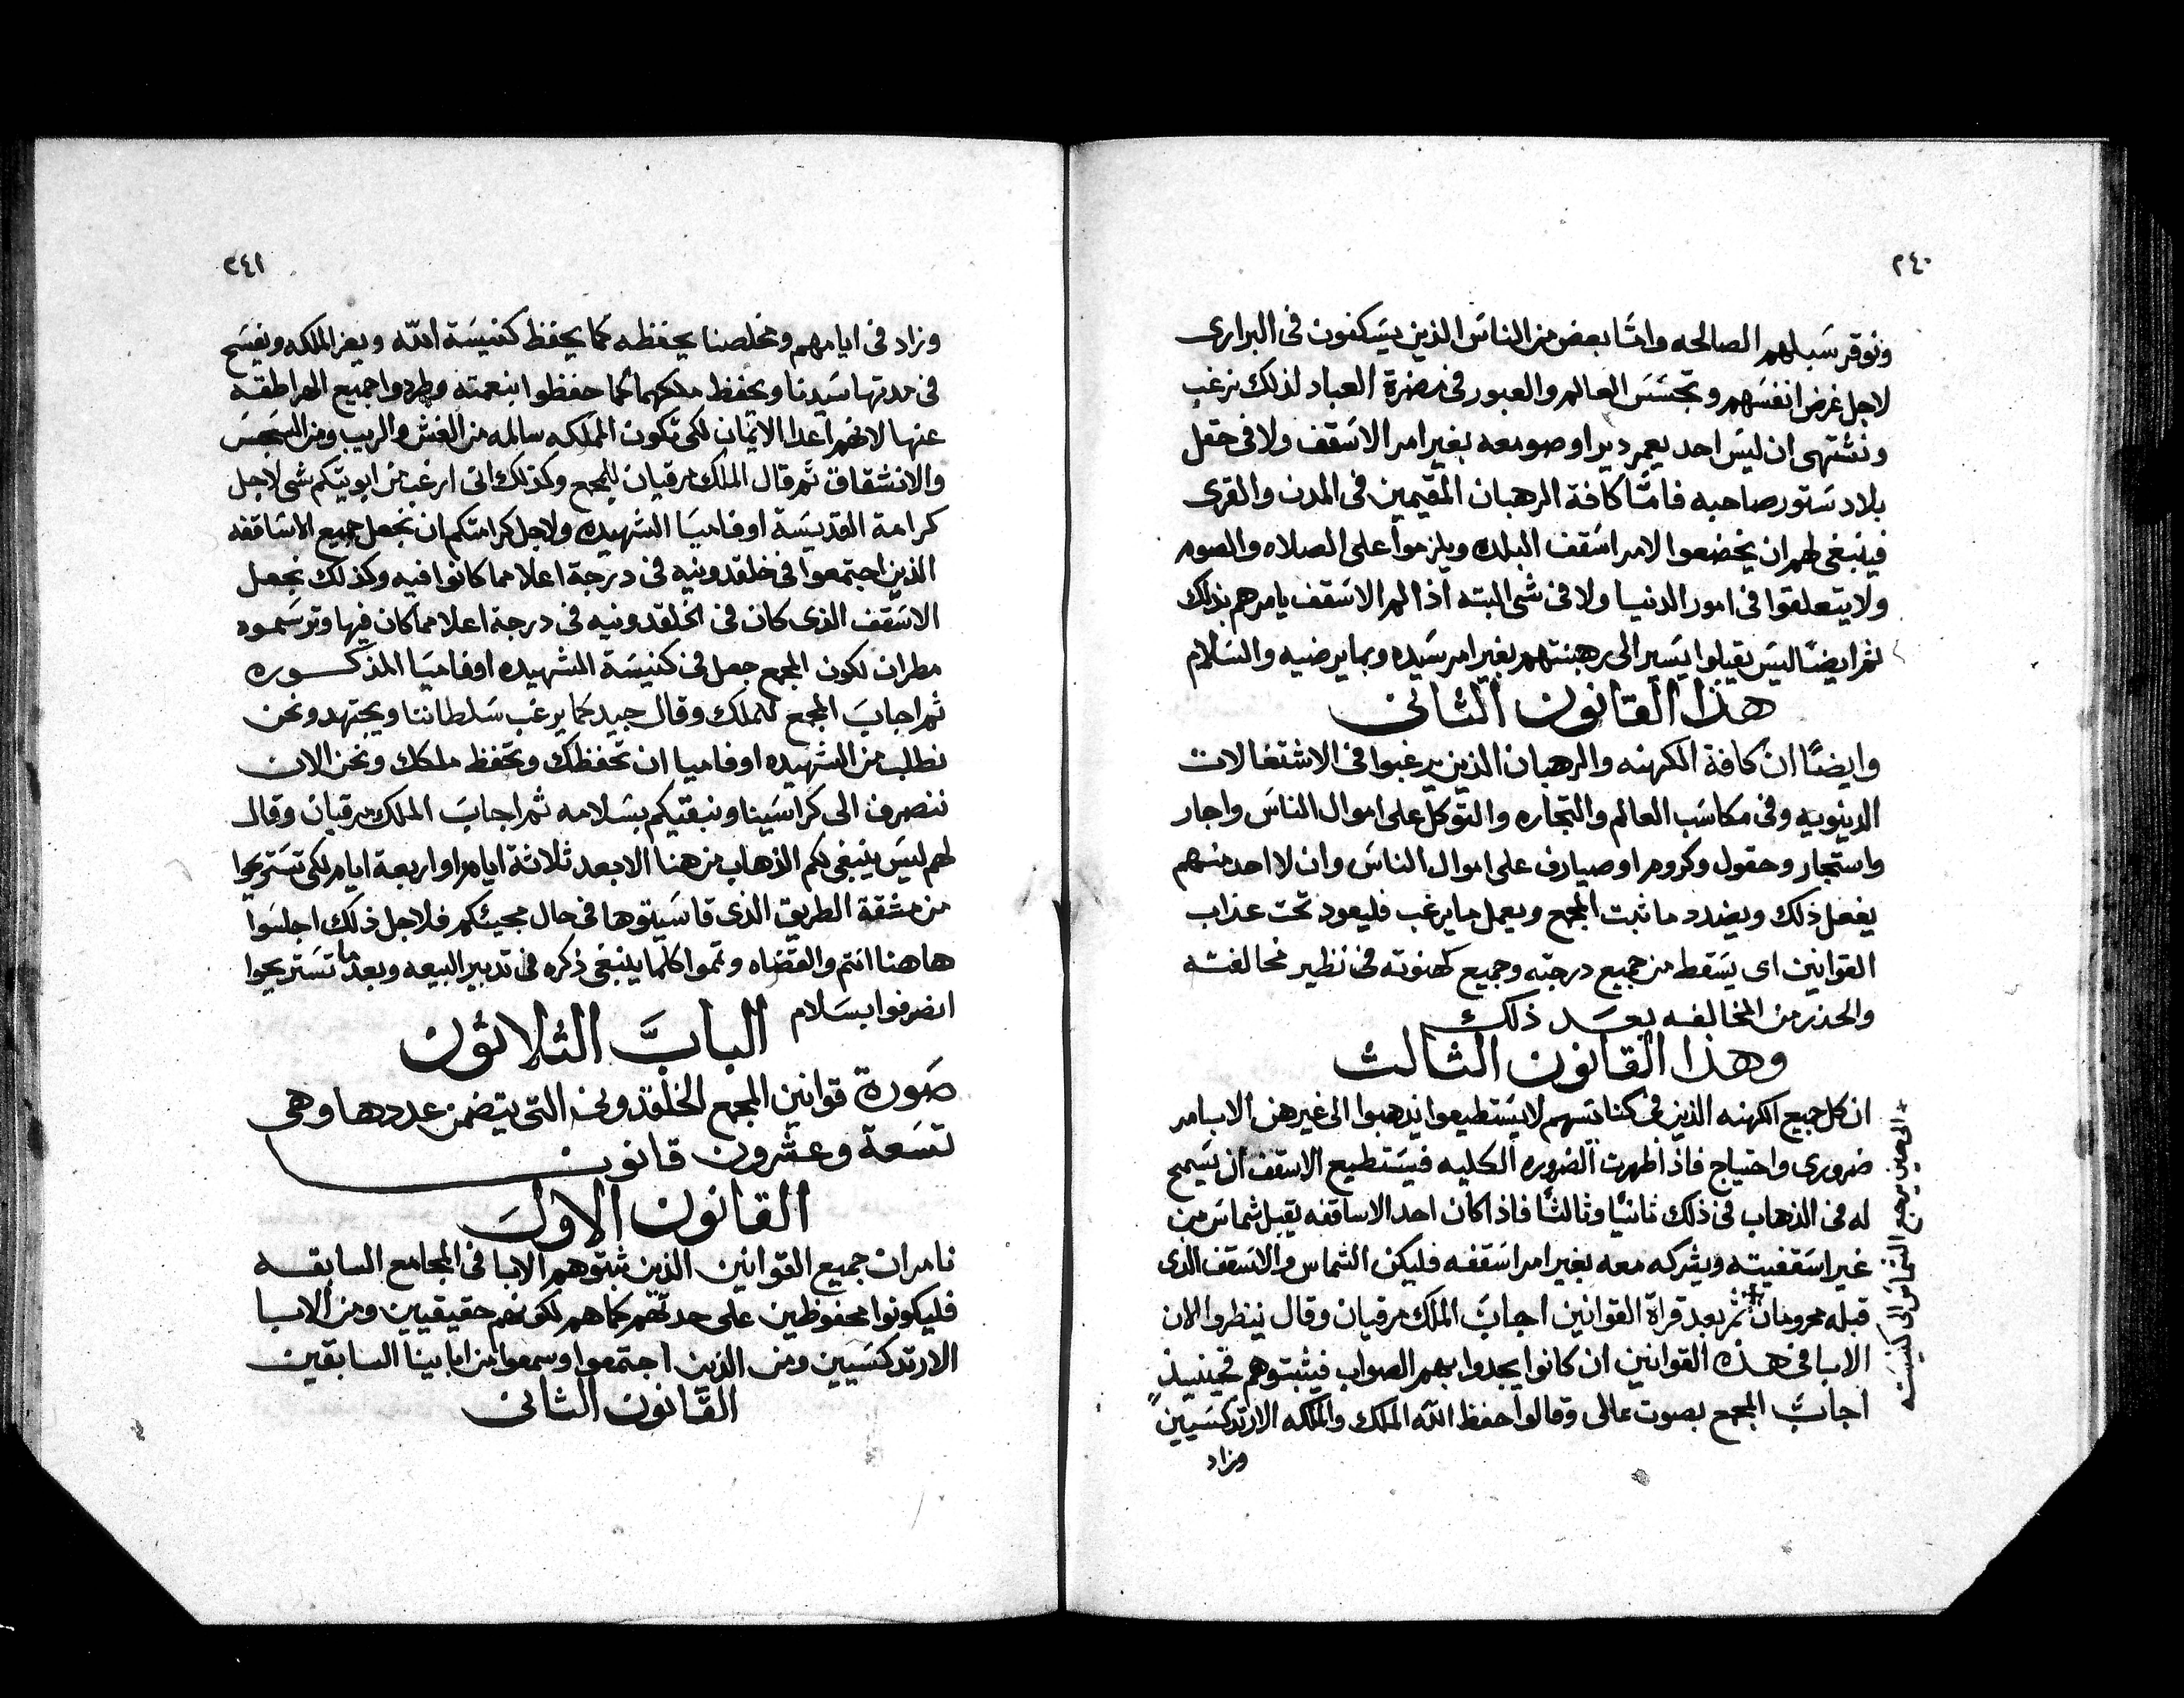 ٢٤٠
ونوقر سبلهم الصالحه وامّا بعض من الناس الذين يسكنون فى البرارى
لاجل غرض انفسهم وتجسس العالم والعبور فى مضرة العباد لذلك نرغب
ونشتهى ان ليس احد يعمر ديرا وصومعه بغير امر الاسقف ولا فى حقل
بلا دستور صاحبه فامّا كافة الرهبان المقيمين فى المدن والقرى
فينبغى لهم ان يخضعوا لامر اسقف البلده ويلزموا على الصلاه والصوم
ولا يتعلقوا فى امور الدنيا ولا فى شى البته اذا لم الاسقف يامرهم بذلك
ثم ايضًا ليس يقبلوا يسير الى رهبنتهم بغير امر سيده وبما يرضيه والسلام
هذا القانون الثانى
وايضًا ان كافة الكهنه والرهبان الذين يرغبوا فى الاشتغالات
الدينويه وفى مكاسب العالم والتجاره والتوكل على اموال الناس واجار
واستجار وحقول وكروم او صيارف على اموال الناس وان لا احد منهم
يفعل ذلك ويضدد ما ثبت المجمع ويعمل ما يرغب فليعود تحت عذاب
القوانين اى يسقط من جميع درجته وجميع كهنوته فى نظير مخالفته
والحذر من المخالفه بعد ذلك
وهذا القانون الثالث
ان كل جميع الكهنه الذين فى كنائسهم لا يستطيعوا يذهبوا الى غيرهن الا بامر
ضرورى واحتياج فاذا ظهرت الضروره الكليه فيستطيع الاسقف ان يسمح
له فى الذهاب فى ذلك ثانيًا وثالثًا فاذا كان احد الاساقفه يقبل شماس من
غير اسقفيته ويشركه معه بغير امر اسقفه فليكن الشماس والاسقف الذى
قبله محرومان ثم بعد قراة القوانين اجاب الملك مرقيان وقال ينظروا الان
الابا فى هذه القوانين ان كانوا يجدوا بهم الصواب فيثبتوهم فحينيذ
اجاب المجمع بصوت عالى وقالوا حفظ الله الملك والملكه الارتدكسيين
وزاد
الى حين يرجع الشماس الى كنيسته
٢٤١
وزاد فى ايامهم ومخلصنا يحفظه كما يحفظ كنيسة الله ويعز الملكه ويفسح
فى مدتها سيدنا ويحفظ ملكهما كما حفظوا بنعمته وطردوا جميع الهراطقه
عنها لانهم اعدا الايمان لكى تكون المملكه سالمه من الغش والريب ومن السجس
والانشقاق ثم قال الملك مرقيان للمجمع وكذلك انى ارغب من ابويتكم شى لاجل
كرامة القديسة اوفاميا الشهيده ولاجل كرامتكم ان نجعل جميع الاساقفه
الذين اجتمعوا فى خلقدونيه فى درجة اعلا مما كانوا فيه وكذلك نجعل
الاسقف الذى كان فى الخلقدونيه فى درجة اعلا مما كان فيها وترسموه
مطران لكون المجمع جعل فى كنيسة الشهيده اوفاميا المذكوره
ثم اجاب المجمع للملك وقال جيد كما يرغب سلطاننا ويجتهد ونحن
نطلب من الشهيده اوفاميا ان تحفظك وتحفظ ملكك ونحن الان
ننصرف الى كراسينا ونبقيكم بسلامه ثم اجاب الملك مرقيان وقال
لهم ليس ينبغى لكم الذهاب من هنا الا بعد ثلاثة ايام او اربعة ايام لكى تستريحوا
من مشقة الطريق الذى قاسيتوها فى حال مجيئكم فلاجل ذلك اجلسوا
هاهنا انتم والقضاه وتموا كلما ينبغى ذكره فى تدبير البيعه وبعد ما تستريحوا
انصرفوا بسلام
الباب الثلاثون
صورة قوانين المجمع الخلقدونى التى يتضمن عددها وهى
تسعة وعشرون قانون
القانون الاول
نامر ان جميع القوانين الذين ثبتوهم الابا فى المجامع السابقه
فليكونوا محفوظين على حدتهم كما هم لكونهم حقيقيين ومن الابا
الارتدكسيين ومن الذين اجتمعوا وسمعوا من اباينا السابقين
القانون الثانى